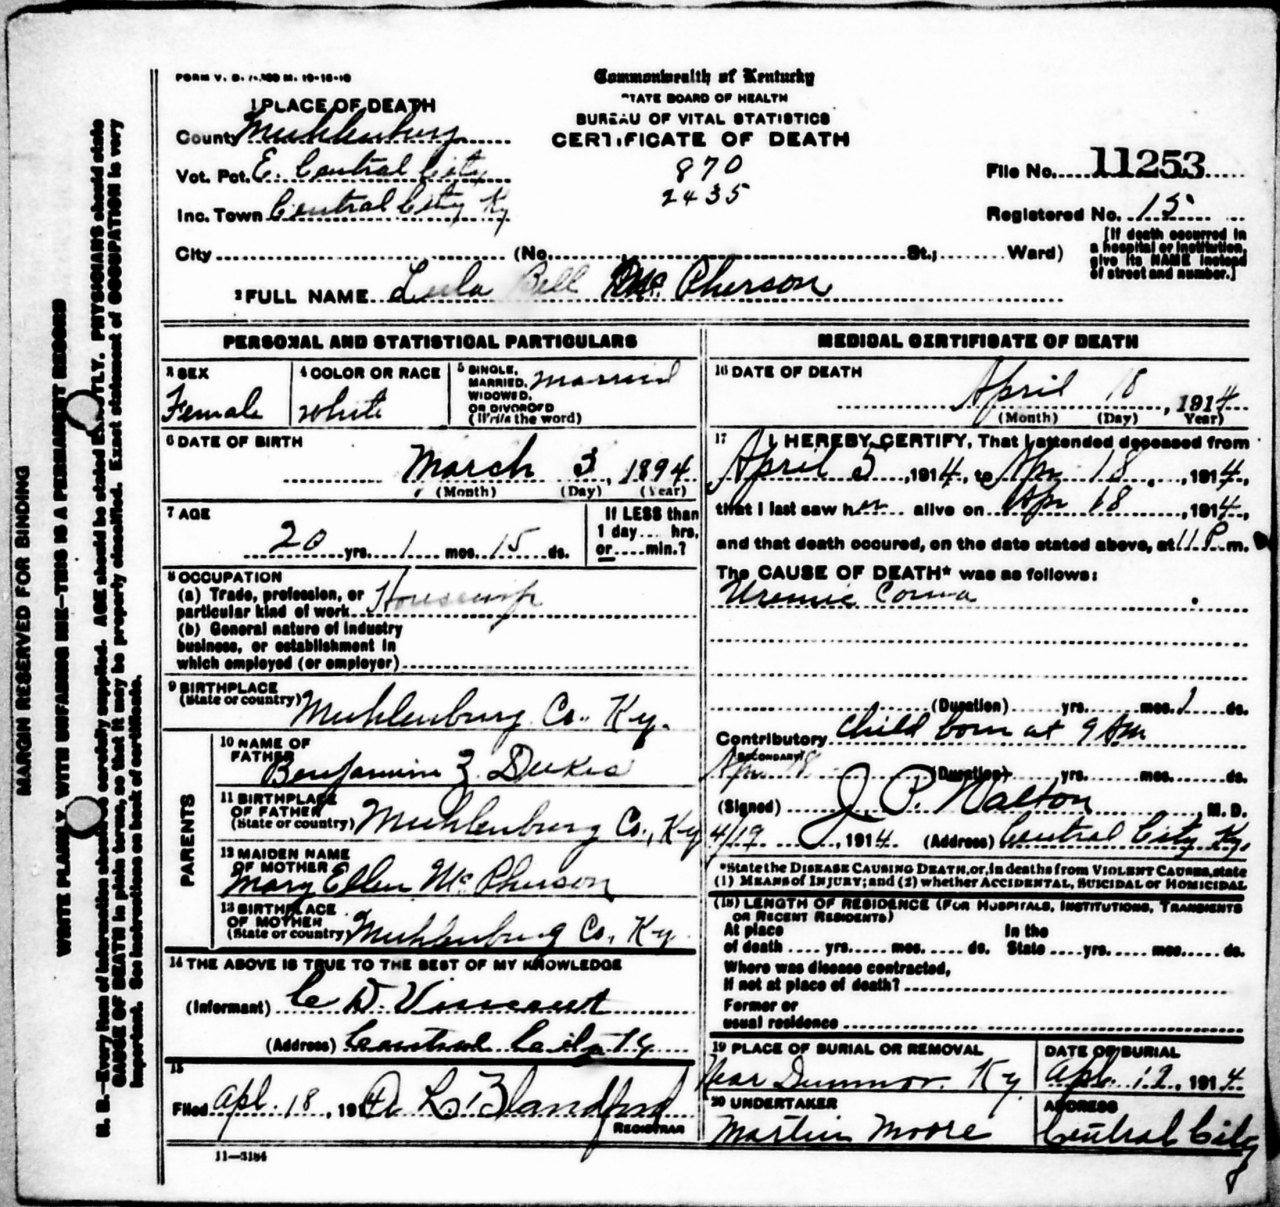 FORM V. S. 10-16-10
Commonwealth of Kentucky
STATE BOARD OF HEALTH
BUREAU OF VITAL STATISTICS
CERTIFICATE OF DEATH
870
2435
1 PLACE OF DEATH
County Muhlenburg
Vot. Pct. E. Central City
Inc. Town Central City Ky
City (No. St.; Ward)
File No. 11253
Registered No. 15
[If death occurred in
a hospital or institution,
give its NAME instead
of street and number.]
2 FULL NAME Lula Bell McPherson
PERSONAL AND STATISTICAL PARTICULARS
3 SEX
Female
4 COLOR OR RACE
white
5 SINGLE,
MARRIED, married
WIDOWED,
OR DIVORCED
(Write the word)
6 DATE OF BIRTH
March 3, 1894
(Month) (Day) (Year)
7 AGE
20 yrs. 1 mos. 15 ds.
If LESS than
1 day.... hrs.
or......min.?
8 OCCUPATION
(a) Trade, profession, or
particular kind of work Housewife
(b) General nature of industry
business, or establishment in
which employed (or employer)
9 BIRTHPLACE
(State or country) Muhlenburg Co., Ky.
PARENTS
10 NAME OF
FATHER Benjamin Z. Dukes
11 BIRTHPLACE
OF FATHER
(State or country) Muhlenburg Co., Ky
12 MAIDEN NAME
OF MOTHER
Mary Ellen McPherson
13 BIRTHPLACE
OF MOTHER
(State or country) Muhlenburg Co, Ky.
14 THE ABOVE IS TRUE TO THE BEST OF MY KNOWLEDGE
(Informant) C. D. Vincent
(Address) Central City Ky
15
Filed Apl. 18, 1914 L Blandford
REGISTRAR
11-3184
MEDICAL CERTIFICATE OF DEATH
16 DATE OF DEATH
April 18, 1914
(Month) (Day) Year)
17 I HEREBY CERTIFY, That I attended deceased from
April 5, 1914, to Apr 18, 1914,
that I last saw her alive on Apr 18, 1914,
and that death occured, on the date stated above, at 11 P m.
The CAUSE OF DEATH* was as follows:
Uremic Coma
(Duration) yrs. mos. 1 ds.
Contributory Child born at 9 AM
SECONDARY
Apr. 18 (Duration) yrs. mos. ds.
(Signed) J. P. Walton M. D.
4/19, 1914 (Address) Central City Ky.
*State the DISEASE CAUSING DEATH, or, in deaths from VIOLENT CAUSES, state
(1) MEANS of INJURY; and (2) whether ACCIDENTAL, SUICIDAL or HOMICIDAL
(18) LENGTH OF RESIDENCE (FOR HOSPITALS, INSTITUTIONS, TRANSIENTS
OR RECENT RESIDENTS)
At place In the
of death yrs. mos. ds. State yrs. mos. ds.
Where was disease contracted,
If not at place of death?
Former or
usual residence
19 PLACE OF BURIAL OR REMOVAL
Near Dunmor. Ky
DATE OF BURIAL
Apl. 19, 1914
20 UNDERTAKER
Martin Moore
ADDRESS
Central City
MARGIN RESERVED FOR BINDING
WRITE PLAINLY, WITH UNFADING INK-THIS IS A PERMANENT RECORD
N. B.-Every item of information should be carefully supplied. AGE should be stated EXACTLY. PHYSICIANS should state
CAUSE OF DEATH in plain terms, so that it may be properly classified. Exact statement of OCCUPATION is very
important. See instructions on back of certificate.